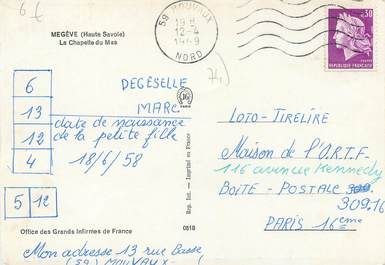 6 €
MEGÈVE (Haute Savoie)
La Chapelle du Mas
59 MOUVAUX
18 H
12-4
1969
NORD
0.30
RÉPUBLIQUE FRANÇAISE
6
13
12
4
5 12
DEGESELLE
MARC
date de naissance
de la petite fille
18/6/58
Rep. Int. - Imprimé en France
LOTO-TIRELIRE
Maison de l'O.R.T.F.
116 avenue Kennedy
BOITE - POSTALE
309.16
PARIS 16eme
Office des Grands Infirmes de France
0818
Mon adresse 13 rue Basse
(59) MOUVAUX